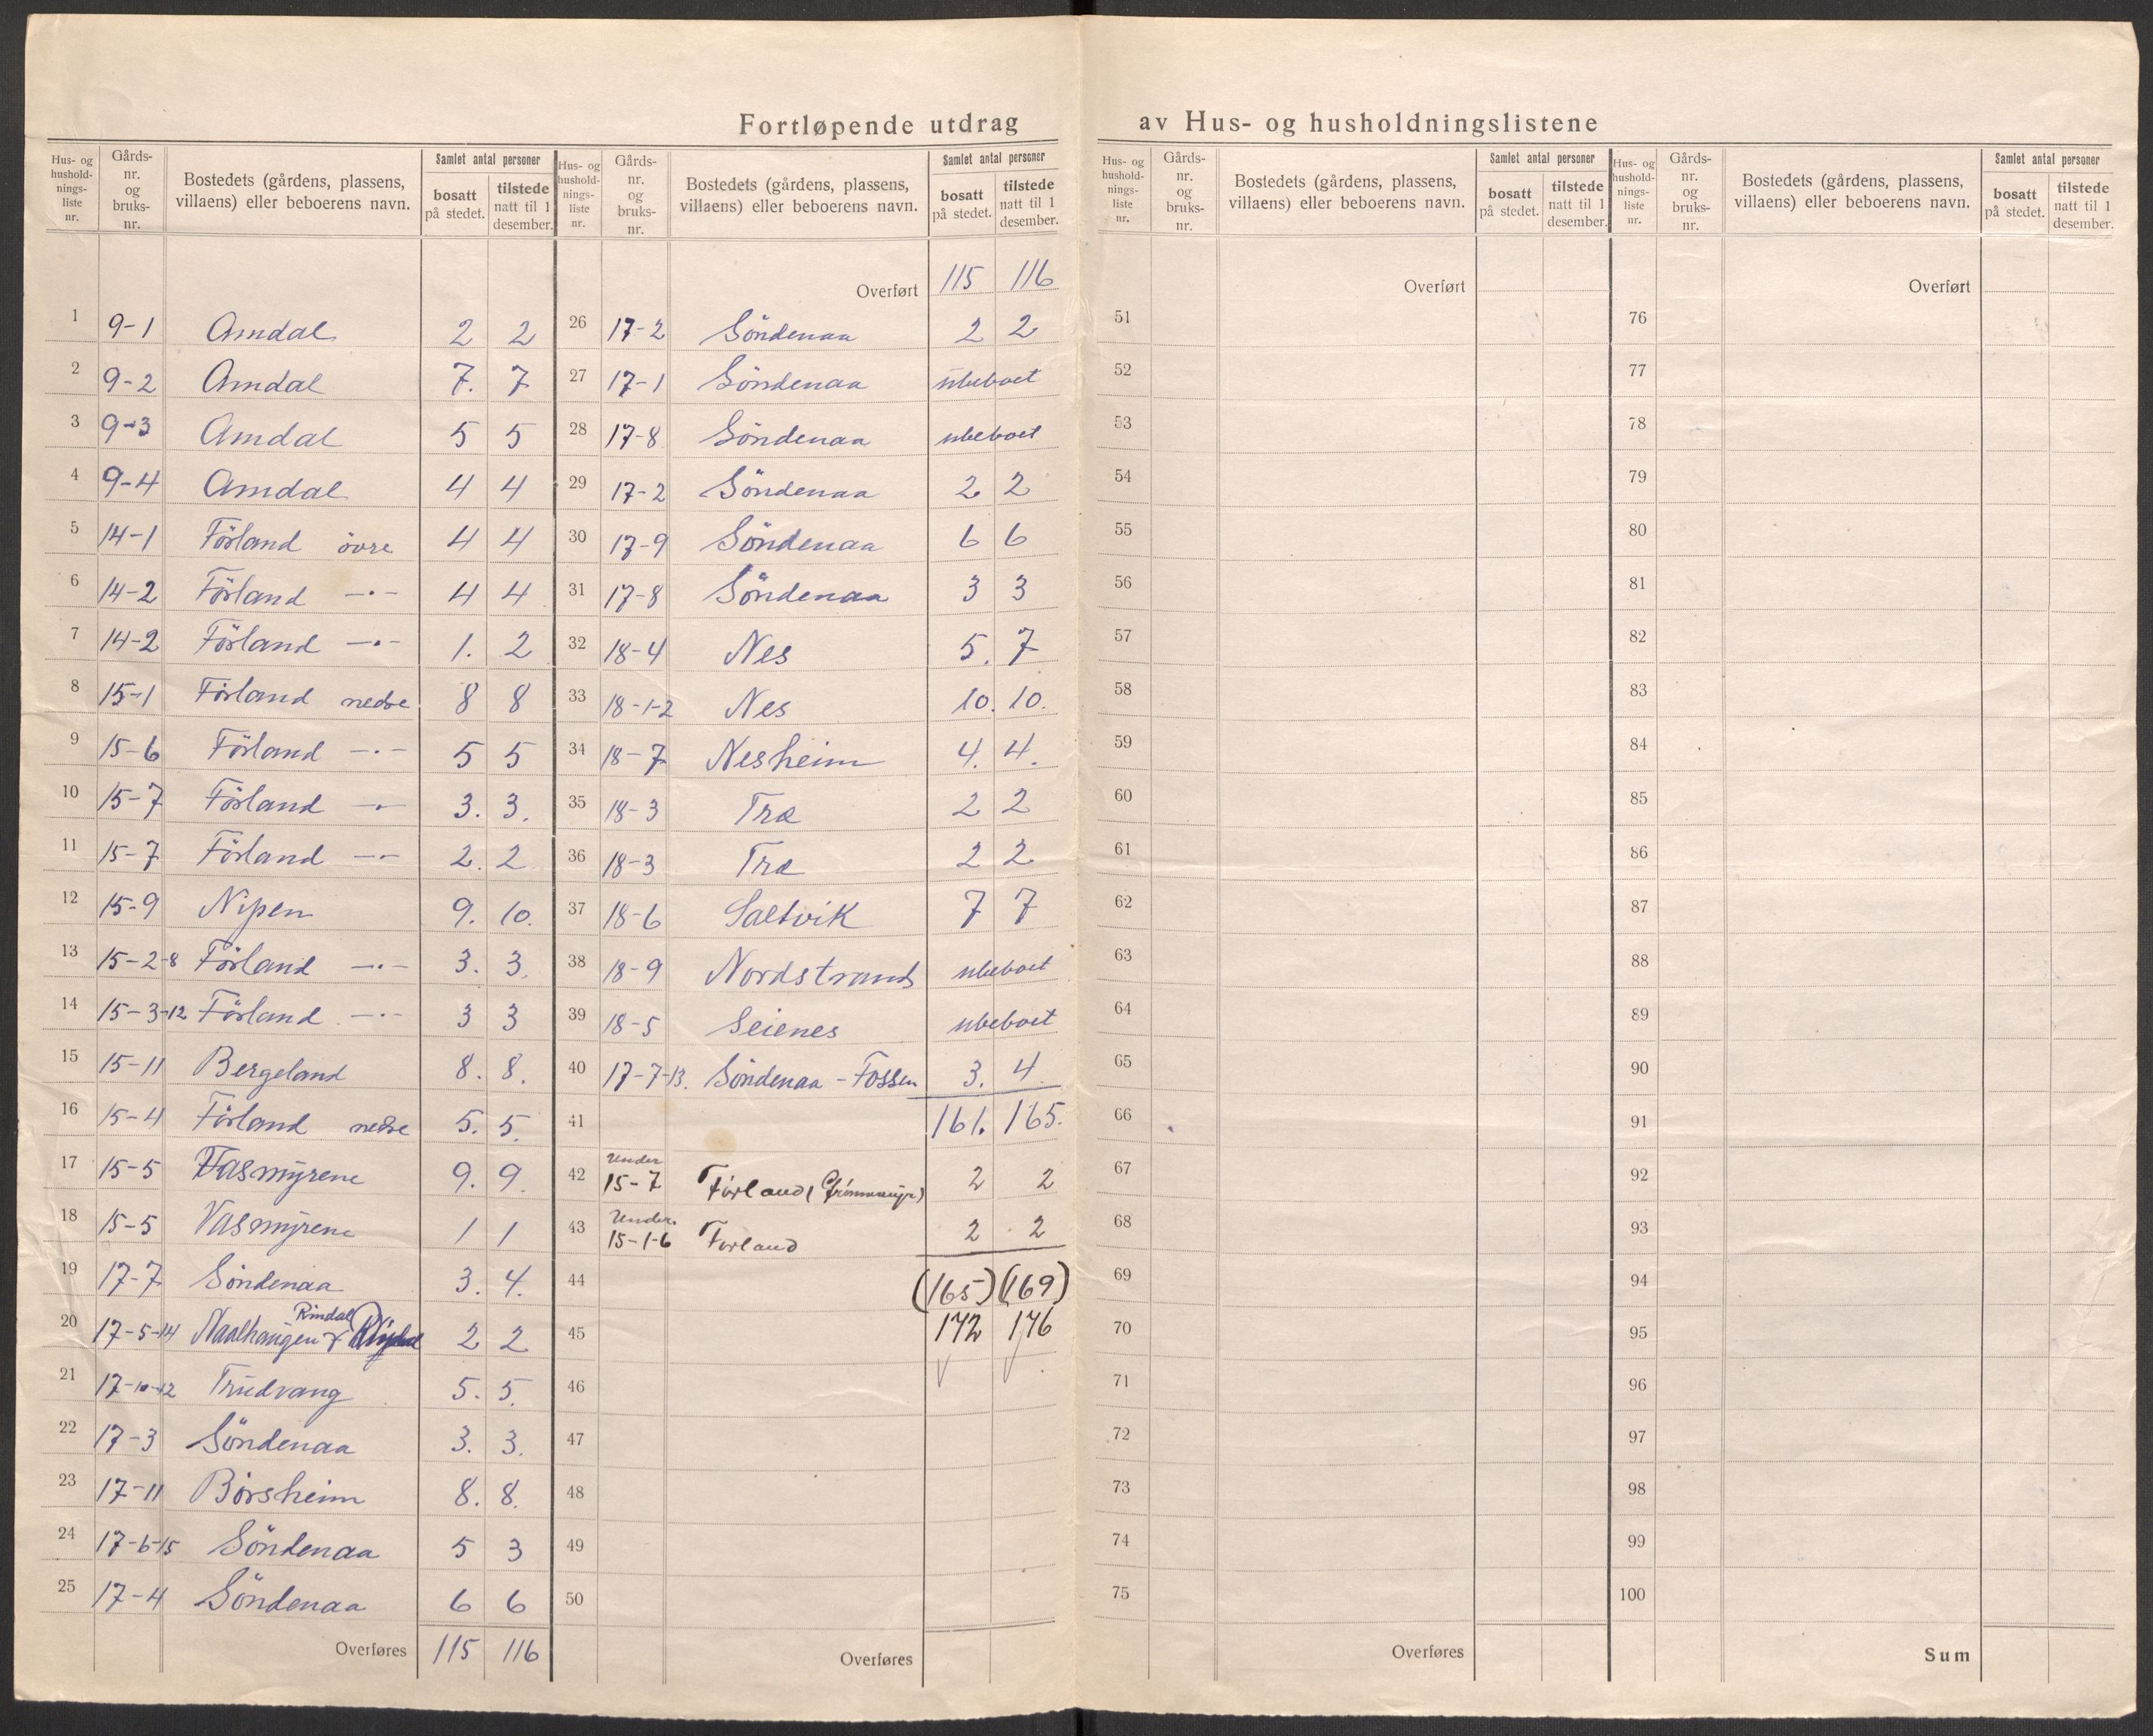 Fortløpende utdrag av Hus- og husholdningslistene
Hus- og hushold- nings- liste nr. | Gårds- nr. og bruks- nr. | Bostedets (gårdens, plassens, villaens) eller beboerens navn. | Samlet antal personer | bosatt på stedet. | tilstede natt til 1 desember.
1 9-1 Amdal 2 2
2 9-2 Amdal 7. 7
3 9-3 Amdal 5 5
4 9-4 Amdal 4 4
5 14-1 Förland övre 4 4
6 14-2 Förland -"- 4 4
7 14-2 Förland -"- 1. 2
8 15-1 Förland nedre 8 8
9 15-6 Förland -"- 5 5
10 15-7 Förland -"- 3. 3.
11 15-7 Förland -"- 2. 2
12 15-9 Nipen 9. 10.
13 15-2-8 Förland -"- 3. 3.
14 15-3-12 Förland -"- 3 3
15 15-11 Bergeland 8. 8.
16 15-4 Förland nedre 5. 5.
17 15-5 Vasmyrene 9. 9.
18 15-5 Vasmyrene 1 1
19 17-7 Söndenaa 3. 4.
Rindal
20 17-5-14 Naalhaugen & 2 2
21 17-10-12 Trudvang 5. 5.
22 17-3 Söndenaa 3. 3.
23 17-11 Börsheim 8. 8.
24 17-6-15 Söndenaa 5 3
25 17-4 Söndenaa 6 6
Overføres 115 116
Hus- og hushold- nings- liste nr. | Gårds- nr. og bruks- nr. | Bostedets (gårdens, plassens, villaens) eller beboerens navn. | Samlet antal personer | bosatt på stedet. | tilstede natt til 1 desember.
Overført 115 116
26 17-2 Söndenaa 2 2
27 17-1 Söndenaa ubeboet
28 17-8 Söndenaa ubeboet
29 17-2 Söndenaa 2 2
30 17-9 Söndenaa 6 6
31 17-8 Söndenaa 3 3
32 18-4 Nes 5. 7
33 18-1-2 Nes 10. 10.
34 18-7 Nesheim 4. 4.
35 18-3 Træ 2 2
36 18-3 Træ 2 2
37 18-6 Saltvik 7 7
38 18-9 Nordstrand ubeboet
39 18-5 Seienes ubeboet
40 17-7-13. Söndenaa - Fossen 3. 4
41 161. 165.
Under
42 15-7 Förland 2 2
Under
43 15-1-6 Forland 2 2
44 (165) (169)
45 172 176
46
47
48
49
50
Overføres
Hus- og hushold- nings- liste nr. | Gårds- nr. og bruks- nr. | Bostedets (gårdens, plassens, villaens) eller beboerens navn. | Samlet antal personer | bosatt på stedet. | tilstede natt til 1 desember.
Overført
51
52
53
54
55
56
57
58
59
60
61
62
63
64
65
66
67
68
69
70
71
72
73
74
75
Overføres
Hus- og hushold- nings- liste nr. | Gårds- nr. og bruks- nr. | Bostedets (gårdens, plassens, villaens) eller beboerens navn. | Samlet antal personer | bosatt på stedet. | tilstede natt til 1 desember.
Overført
76
77
78
79
80
81
82
83
84
85
86
87
88
89
90
91
92
93
94
95
96
97
98
99
100
Sum